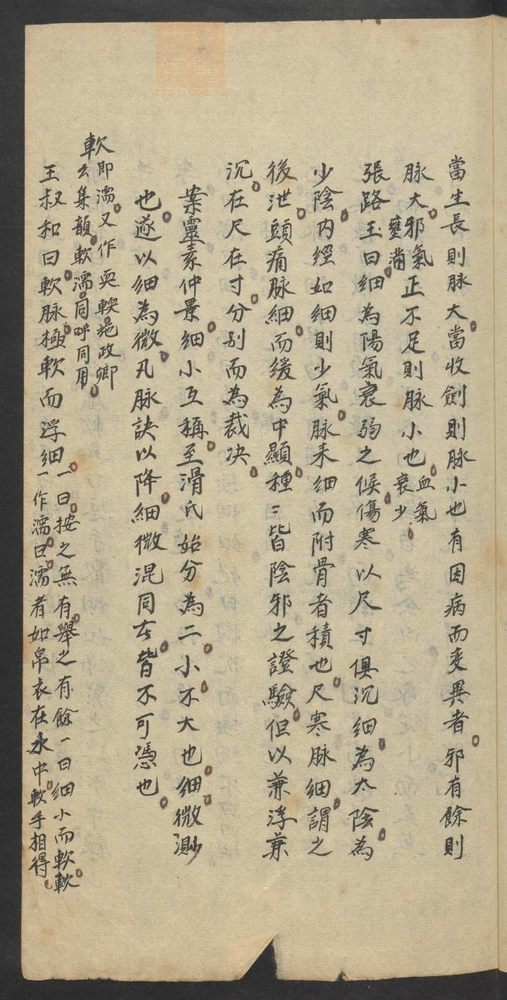 當生長則脈大當收劍則脈小也有因病而变異者邪有餘則
脈大邪氣壅滿正不足則脈小也血氣衰少
張路玉曰細為陽氣衰弱之候傷寒以尺寸俱沉細為太陰為
少陰内經如細則少氣脈来細而附骨者積也尺寒脈細謂之
後泄頭痛脈細而缓為中顯種〻皆陰邪之證驗但以兼浮兼
沉在尺在寸分别而為裁决
案靈素仲景細小互稱至滑氏始分為二小不大也細微渺
也遂以細為微凡脈訣以降細微混同者皆不可憑也
軟即濡又作耎輭施政卿
軟云集韻軟濡同呼同用
王叔和曰軟脈極軟而浮細一曰按之無有舉之有餘一曰細小而軟軟
一作濡曰濡者如帛衣在水中軟手相得